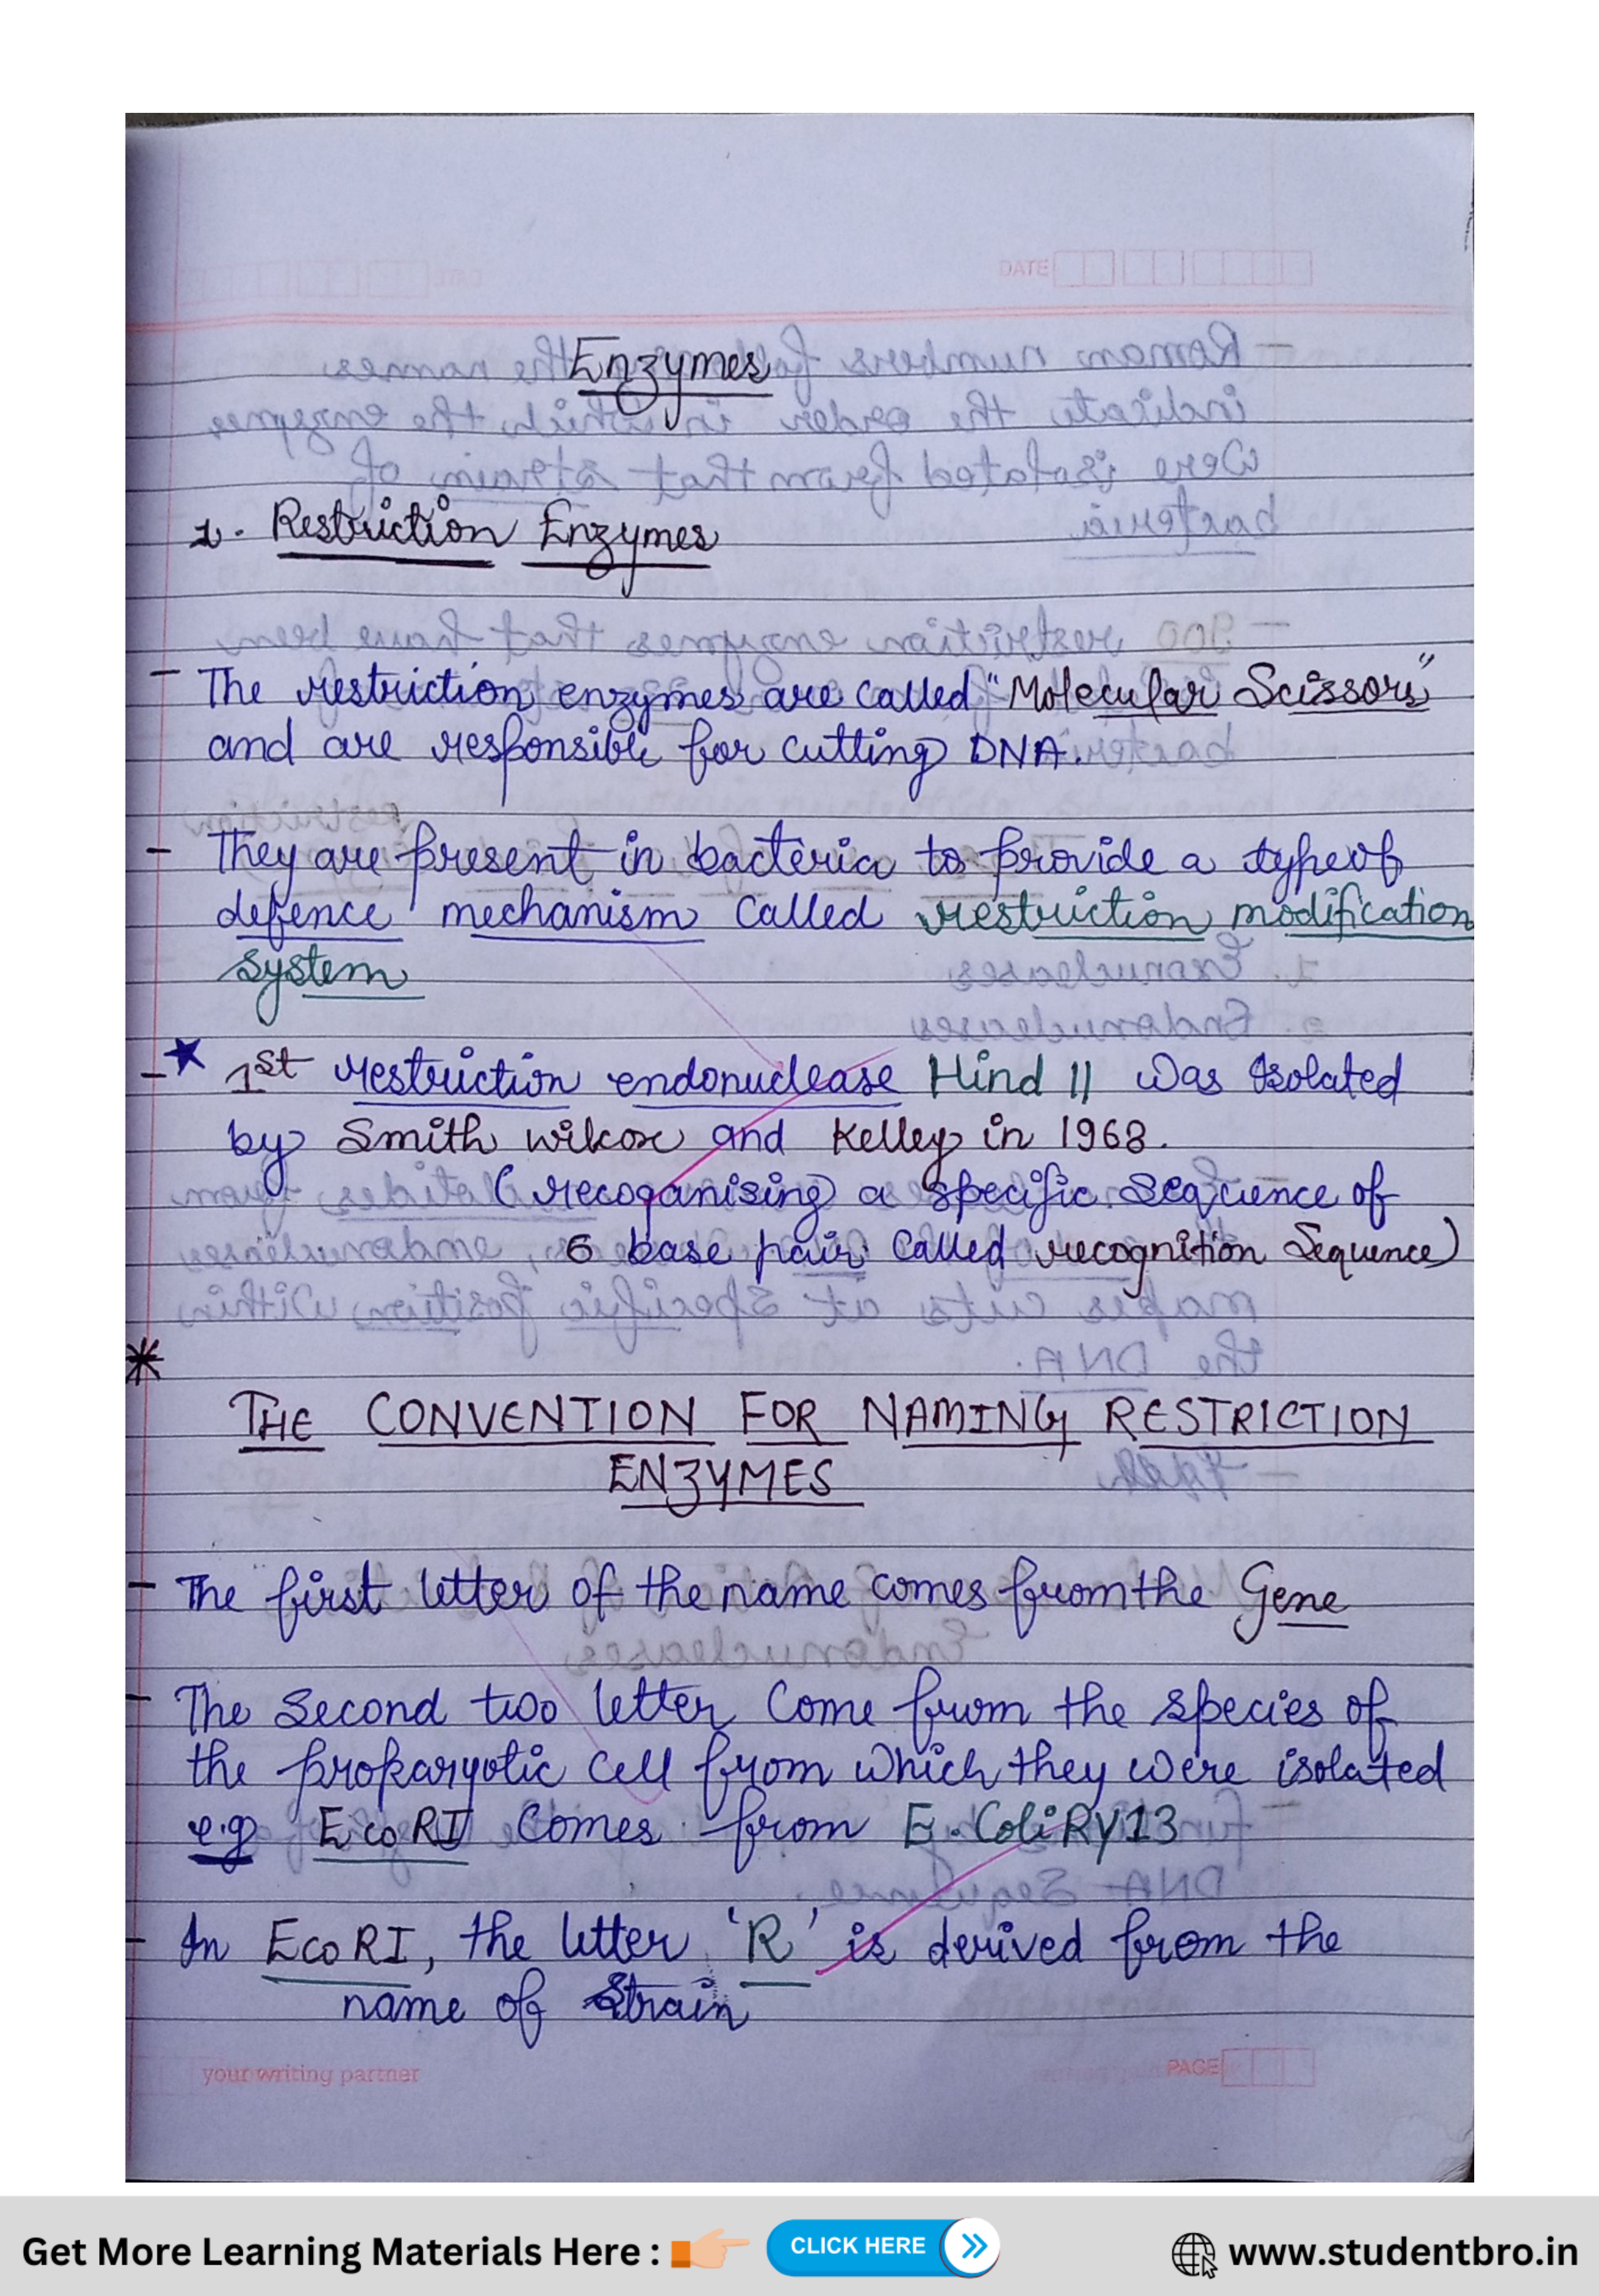 DATE
Enzymes
1. Restriction Enzymes
- The restriction enzymes are called "Molecular Scissors"
and are responsible for cutting DNA.
- They are present in bacteria to provide a type of
defence mechanism called restriction modification
system
- ★ 1st restriction endonuclease Hind II was Isolated
by Smith wilcox and Kelley in 1968.
(recoganising a specific sequence of
6 base pair called recognition Sequence)
*
THE CONVENTION FOR NAMING RESTRICTION
ENZYMES
- The first letter of the name comes from the Gene
- The Second two letter Come from the species of
the prokaryotic cell from which they were isolated
e.g EcoRI Comes from E. Coli RY13
- In EcoRI, the letter 'R' is derived from the
name of Strain
your writing partner PAGE
Get More Learning Materials Here : CLICK HERE www.studentbro.in